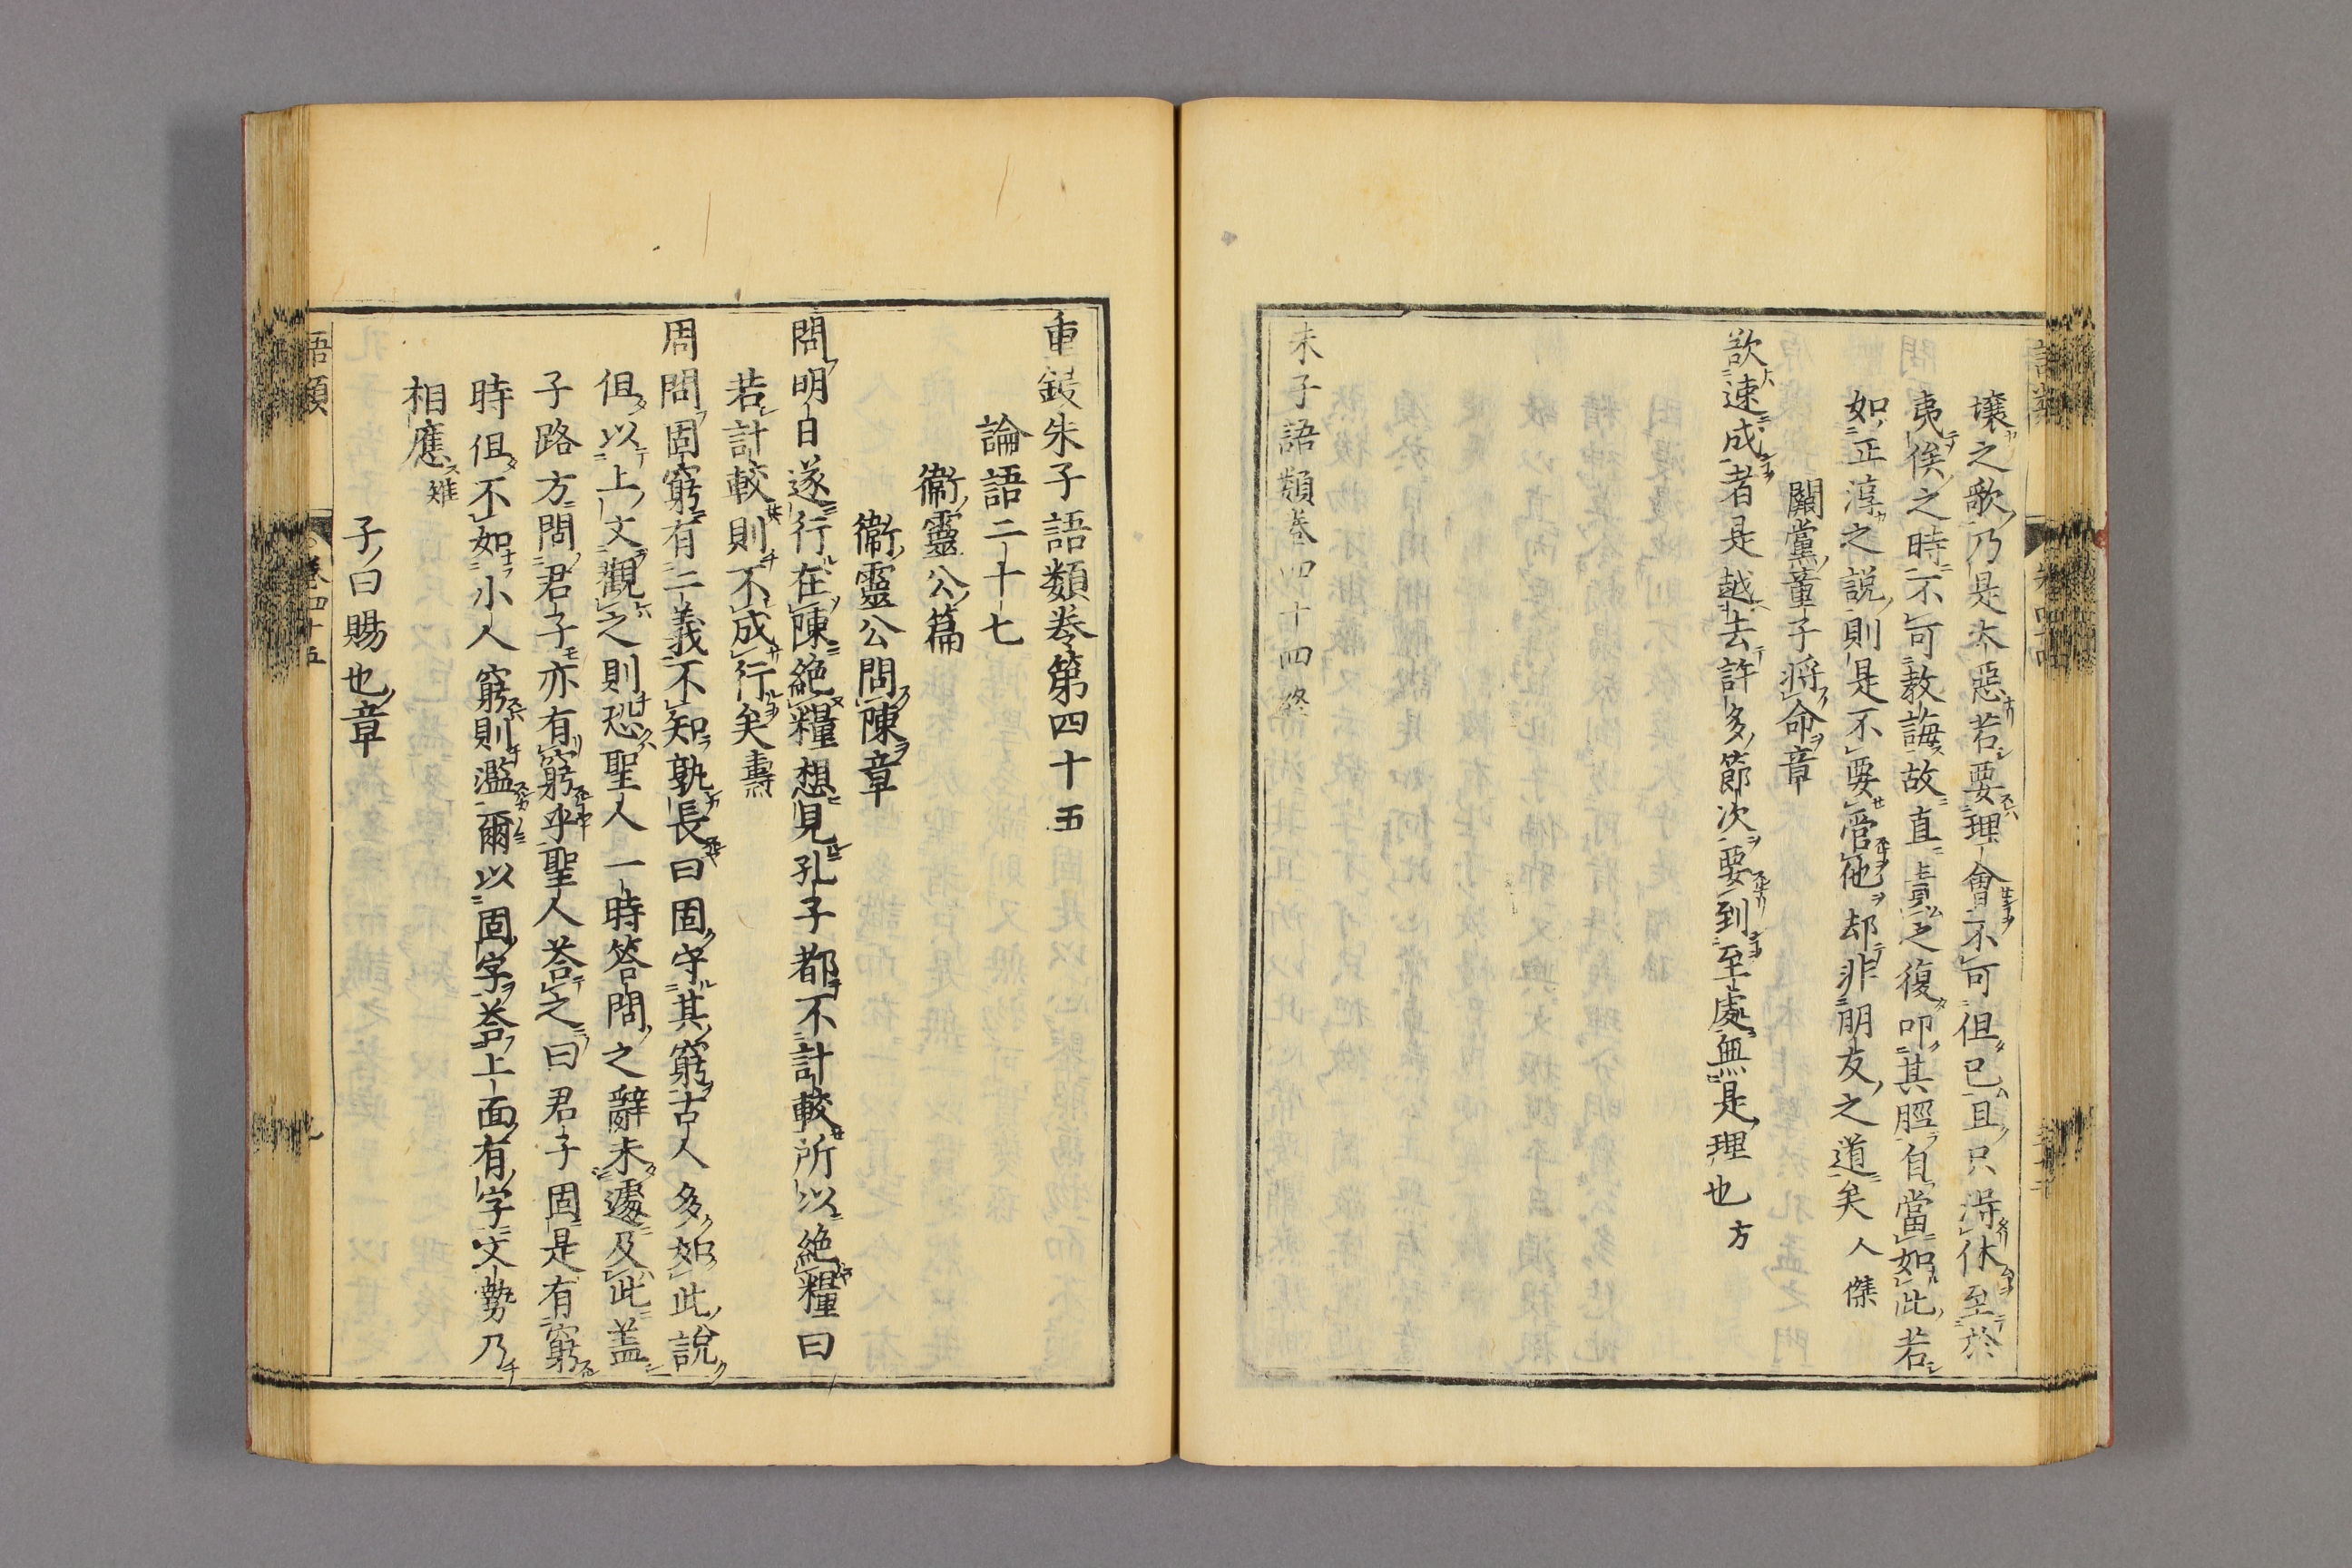 壤之歌乃是大惡若要理會不可但已且只得休至於
夷俟之時不可教誨故直責之復叩其脛自當如此若
如正淳之說則是不要管他却非朋友之道矣 人傑
闕黨童子將命章
欲速成者是越去許多節次要到至處無是理也 方
朱子語類卷四十四終
重鋟朱子語類卷第四十五
論語二十七
衞靈公篇
衞靈公問陳章
問明日遂行在陳絶糧想見孔子都不計較所以絶糧曰
若計較則不成行矣 燾
周問固窮有二義不知孰長曰固守其窮古人多如此說
但以上文觀之則恐聖人一時答問之辭未遽及此盖
子路方問君子亦有窮乎聖人荅之曰君子固是有窮
時但不如小人窮則濫爾以固字荅上面有字文勢乃
相應 雉
子曰賜也章
語類 卷四十五